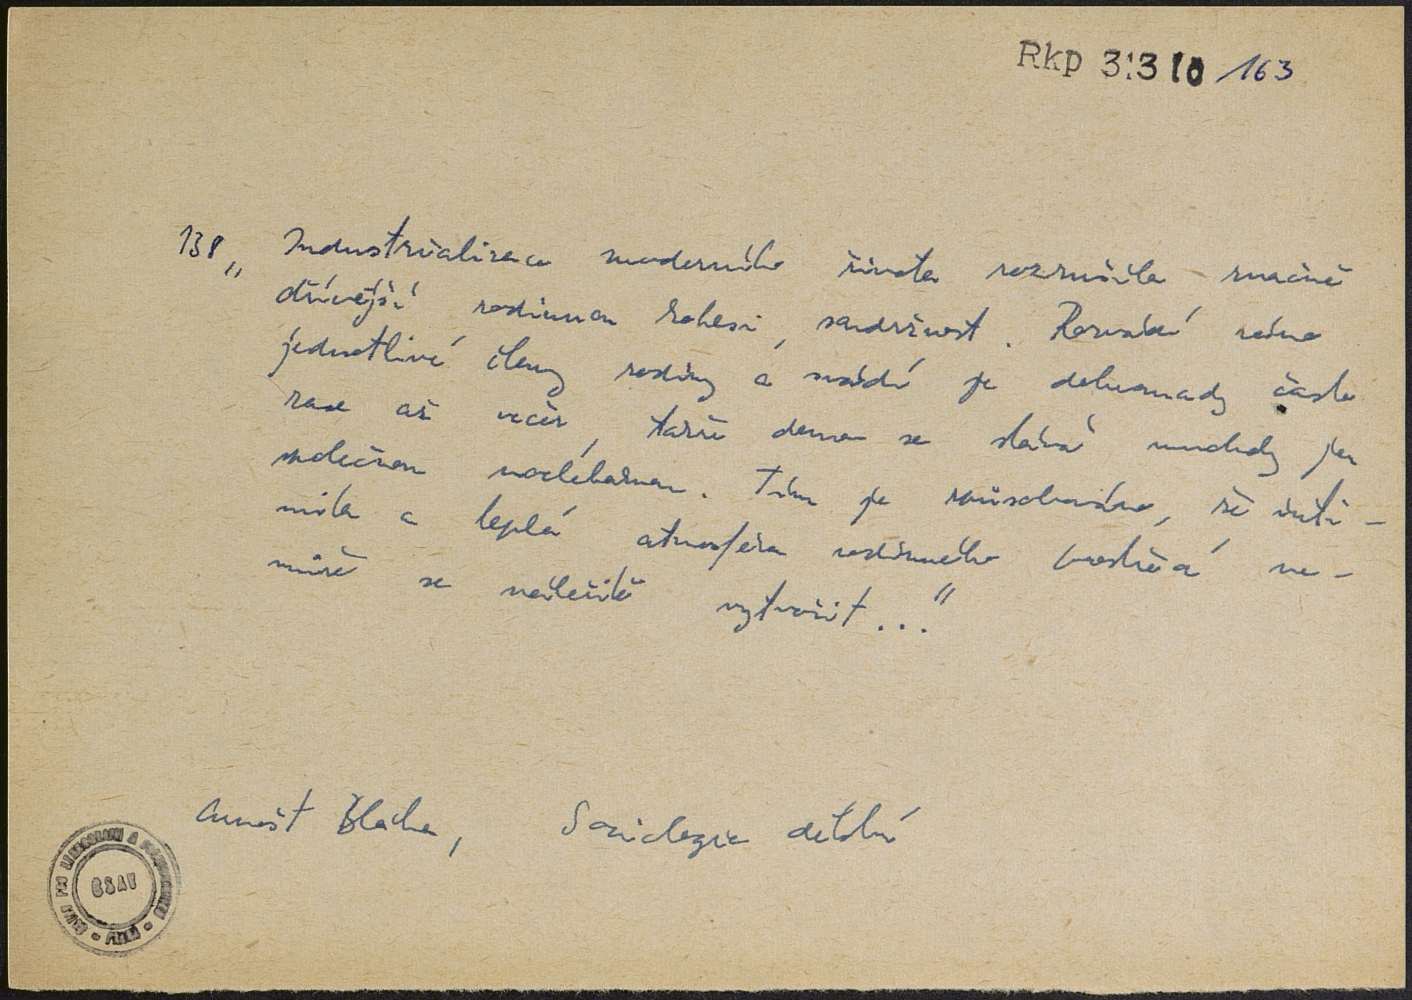 Rkp 3310 /163
138 „ Industrializace moderního života rozrušila značně
dřívější rodinnou kohesi, soudržnost. Rozvádí ráno
jednotlivé členy rodiny a svádí je dohromady často
zase až večer, takže doma se stává mnohdy jen
společnou noclehárnou. Tím je způsobeno, že inti-
míta a teplá atmosféra rodinného prostředí ne-
může se náležitě vytvořit..."
Arnošt Bláha, Sociologie dětství
ČSAV